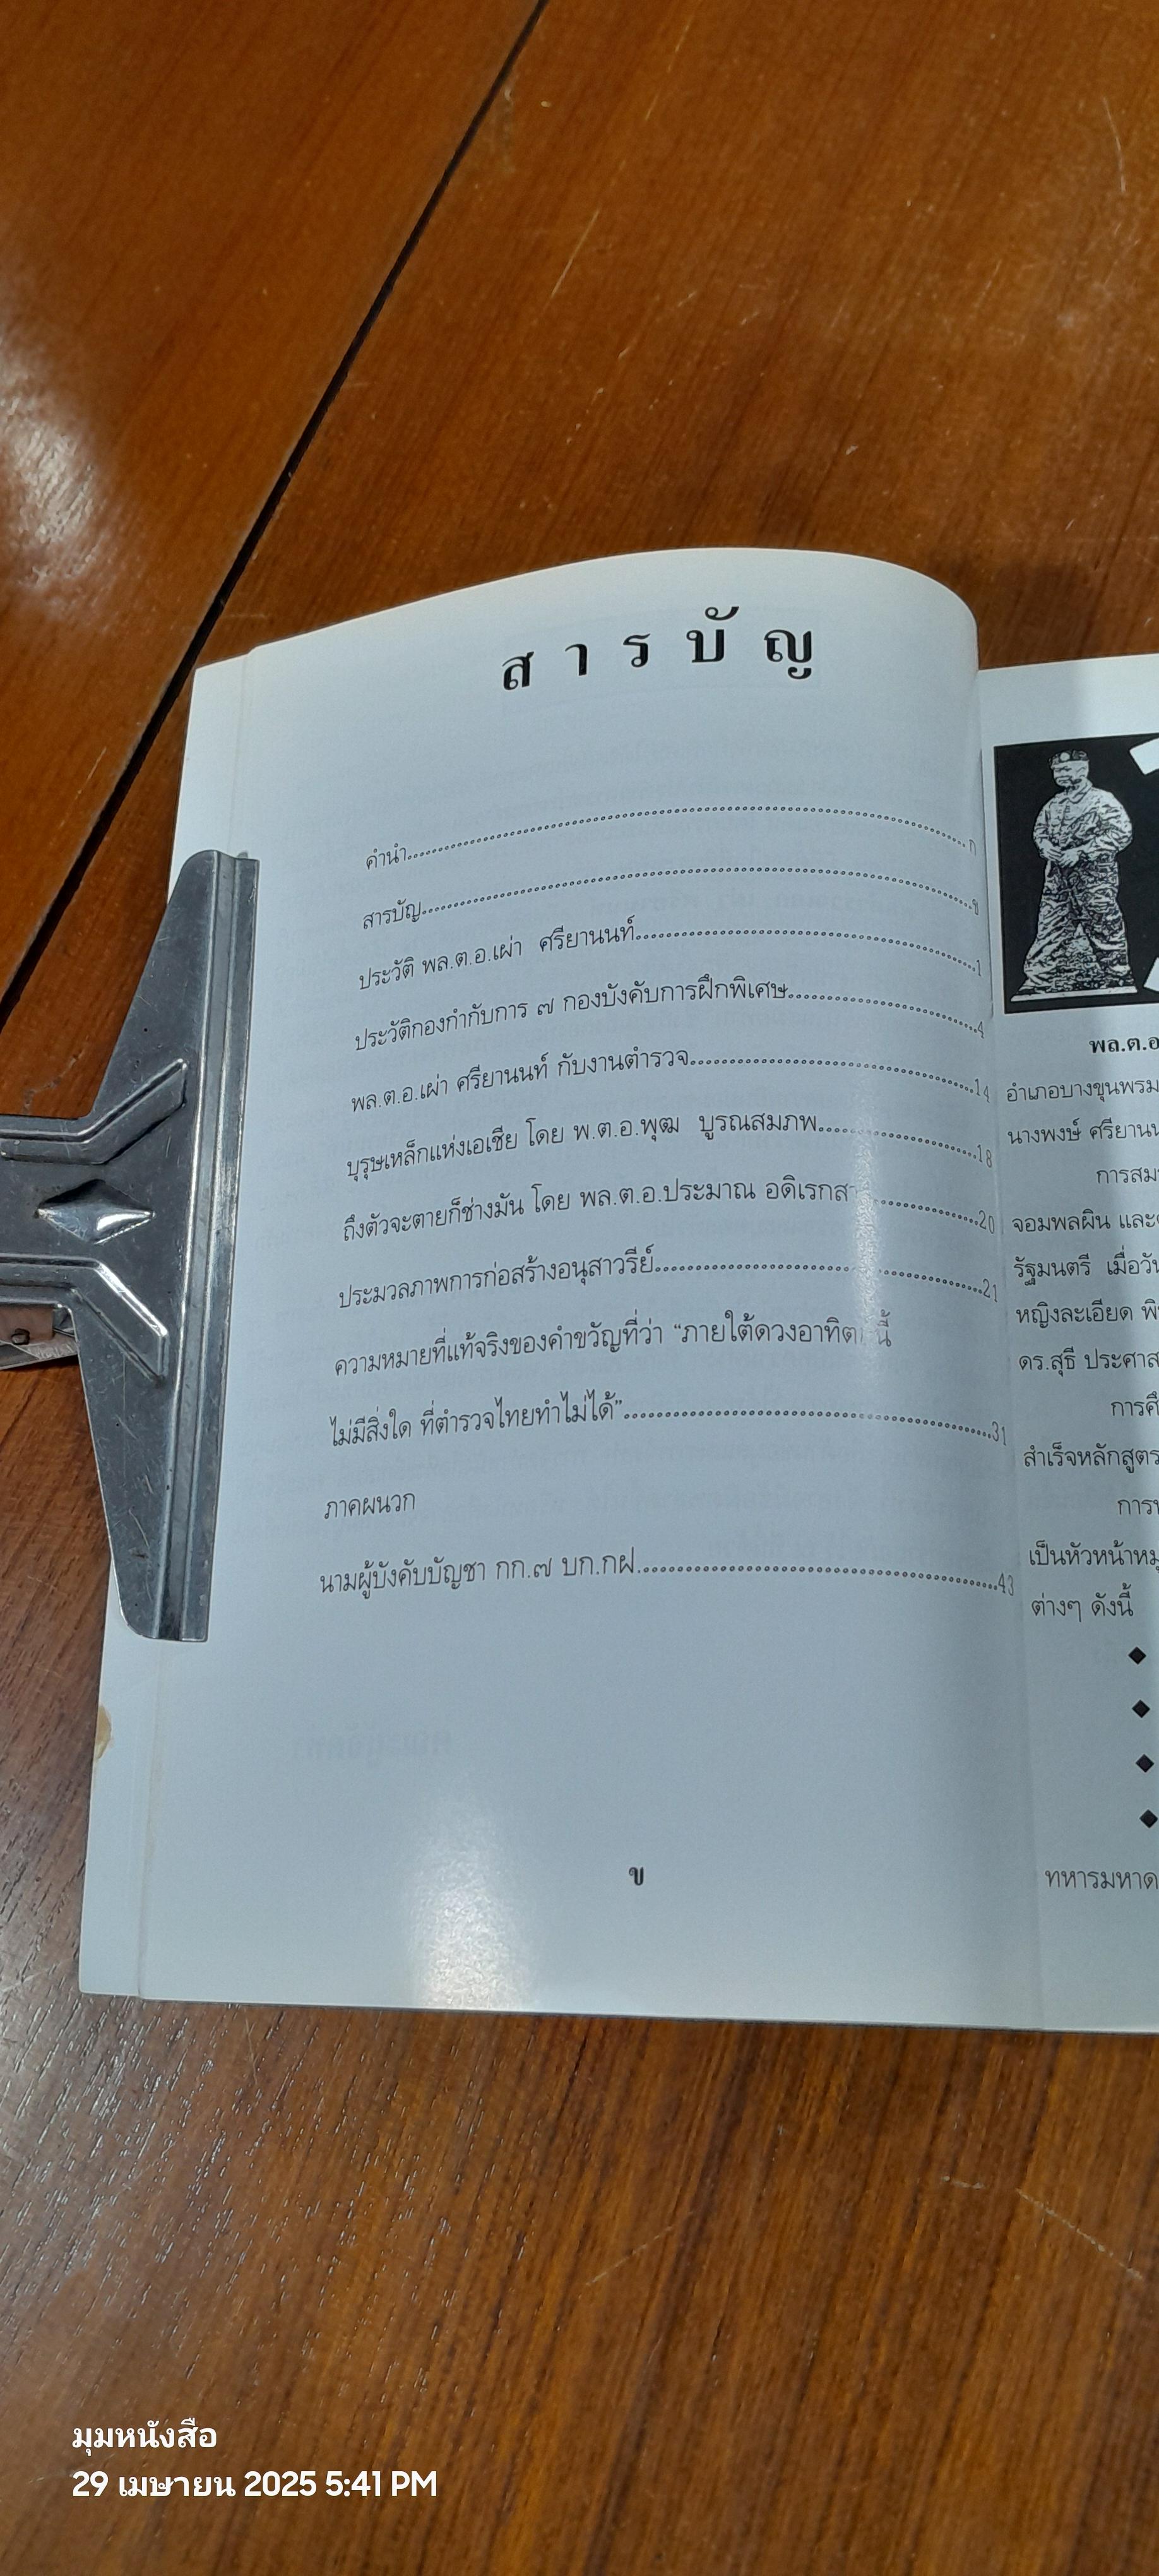 สารบัญ
คำนำ........ก
สารบัญ........ข
ประวัติ พล.ต.อ.เผ่า ศรียานนท์........1
ประวัติกองกำกับการ ๗ กองบังคับการฝึกพิเศษ........4
พล.ต.อ.เผ่า ศรียานนท์ กับงานตำรวจ........14
บุรุษเหล็กแห่งเอเชีย โดย พ.ต.อ.พุฒ บูรณสมภพ........18
ถึงตัวจะตายก็ช่างมัน โดย พล.ต.อ.ประมาณ ........20
ประมวลภาพการก่อสร้างอนุสาวรีย์........21
ความหมายที่แท้จริงของคำขวัญที่ว่า “ภายใต้ดวงอาทิตย์นี้
ไม่มีสิ่งใด ที่ตำรวจไทยทำไม่ได้”........31
ภาคผนวก
นามผู้บังคับบัญชา กก.๗ บก.กฝ.........43
ข
พล.ต.อ
อำเภอบางขุนพรม
นางพงษ์ ศรียานน
การสม
จอมพลผิน และ
รัฐมนตรี เมื่อวัน
หญิงละเอียด พิ
ดร.สุธี ประศาส
การศึ
สำเร็จหลักสูตร
การ
เป็นหัวหน้าหมู
ต่างๆ ดังนี้
ทหารมหาด
มุมหนังสือ
29 เมษายน 2025 5:41 PM